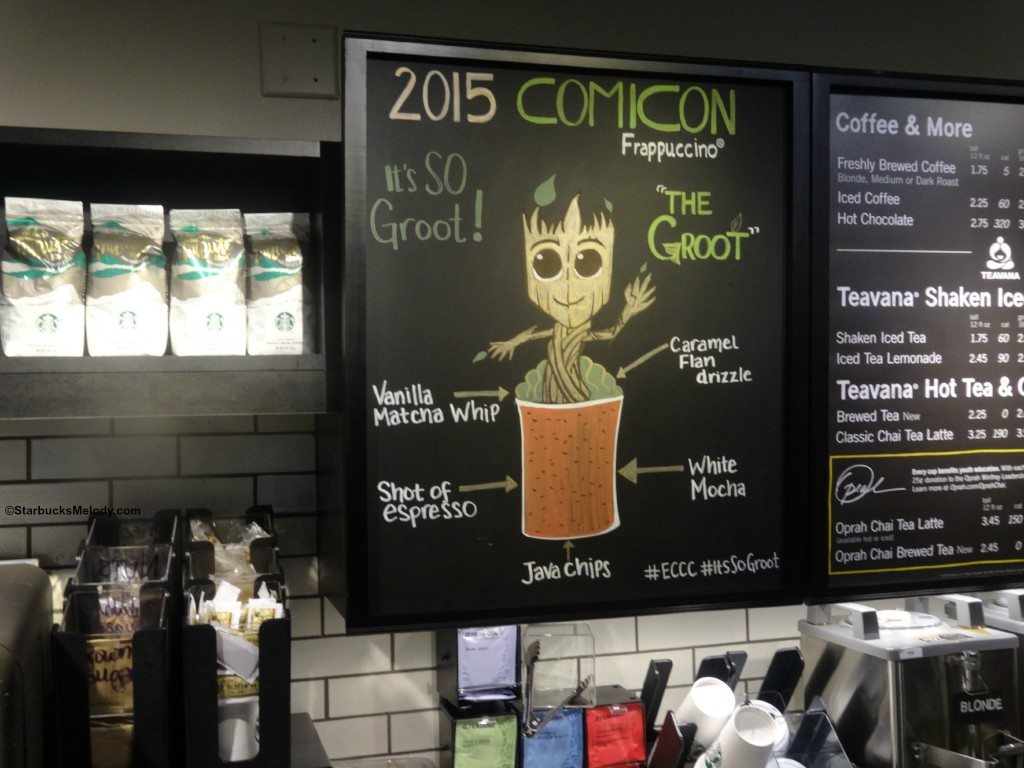 2015 COMICON
Frappuccino®
It's SO
Groot!
"THE
GROOT"
Caramel
Flan
drizzle
Vanilla
Matcha Whip
White
Mocha
Shot of
espresso
Java chips
#ECCC #ItsSoGroot
Coffee & More
tall
12 fl oz cal
Freshly Brewed Coffee 1.75 5
Blonde, Medium or Dark Roast
Iced Coffee 2.25 60
Hot Chocolate 2.75 320
TEAVANA
Teavana® Shaken Ice
tall
12 fl oz cal
Shaken Iced Tea 1.75 60
Iced Tea Lemonade 2.45 90
Teavana® Hot Tea &
tall
12 fl oz cal
Brewed Tea New 2.25 0
Classic Chai Tea Latte 3.25 190
Oprah
Every cup benefits youth education. With
25¢ donation to the Oprah Winfrey Leadership
Learn more at Oprah.com/OprahChai.
tall
12 fl oz cal
Oprah Chai Tea Latte 3.45 250
(available hot or iced)
Oprah Chai Brewed Tea New 2.45 0
©StarbucksMelody.com
BLONDE